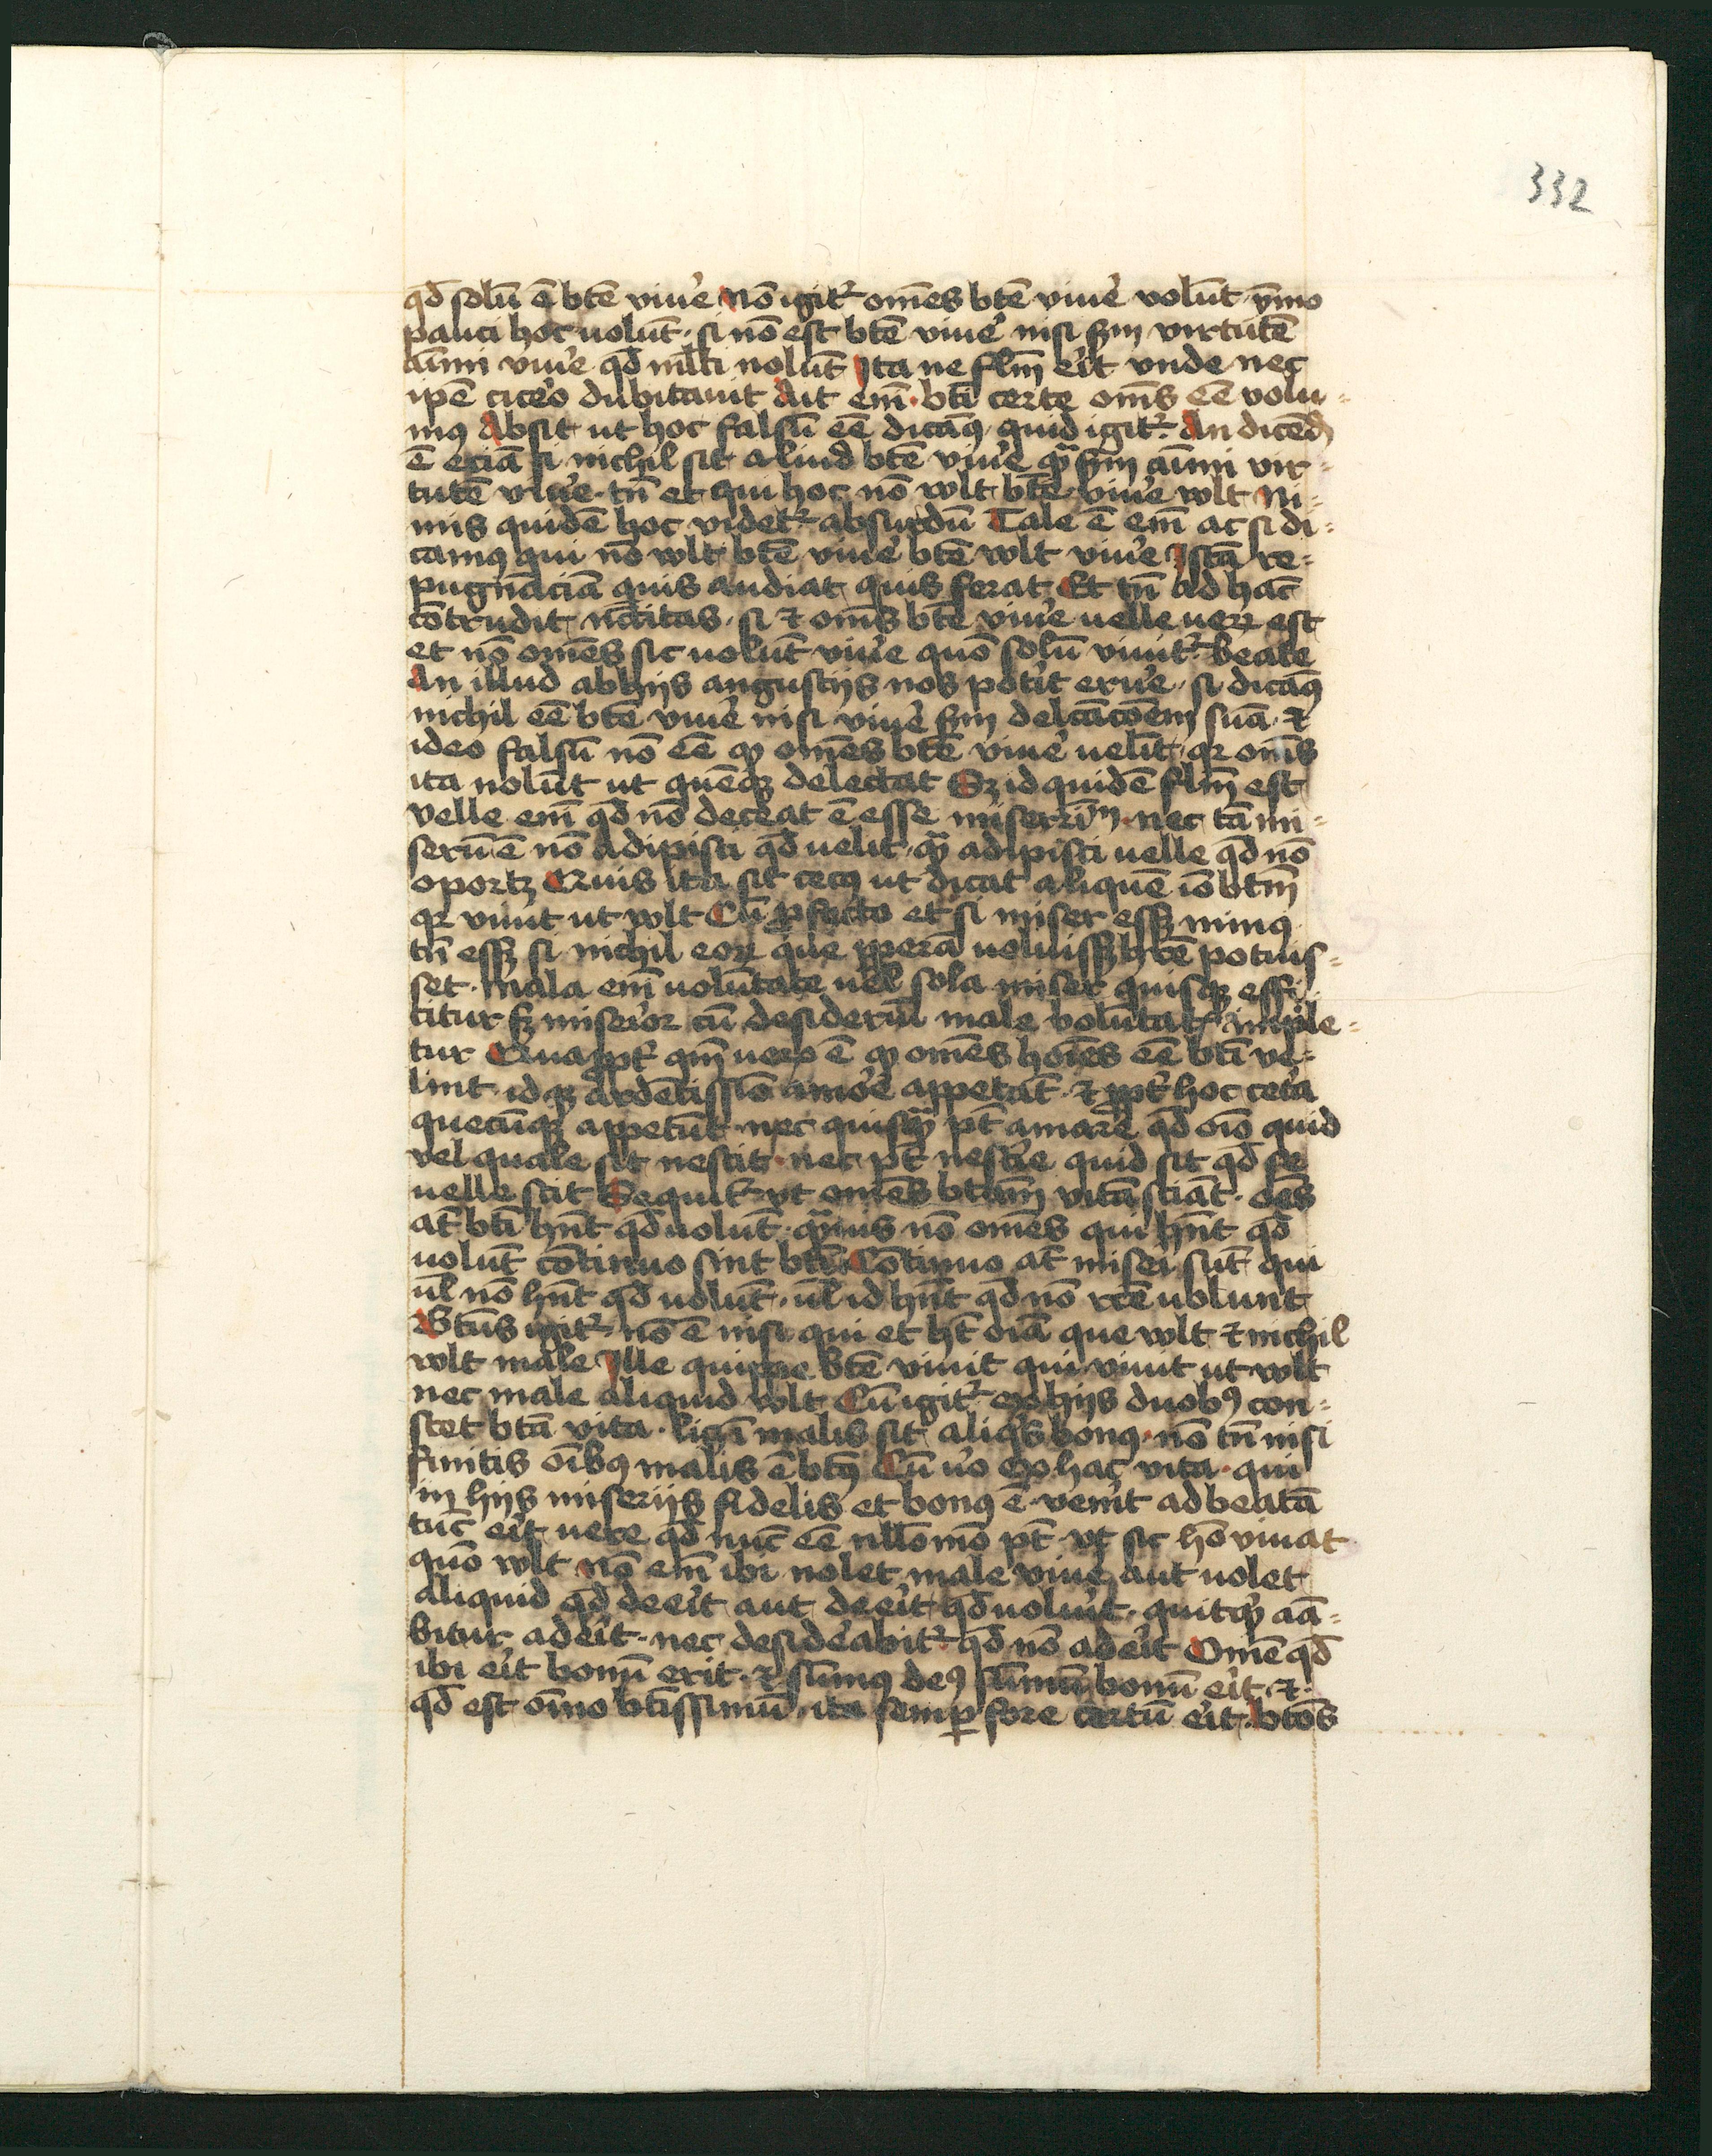 332
qd̄ solū ē btē viuͤe Nō igitᷣ om̄es btē viuͤe volūt ymmo
pauci hoc uolūt · si nō est btē viuͤe nisi scd̄m virtutē
aīmi viuͤe qd̄ ml̄ti nolūt Ita ne flm̄ eͥt vnde nec
ip̄e ciceͦo dubitauit Ait em̄ · bti certe om̄s eē volu-
mꝰ Absit ut hoc falsū eē dicāꝰ quid igitᷣ An dicēd
ē eciā si nichil sit aliud btē viuͤe qᷓ scd̄m aīmi vir-
tutē viuͤe · tn̄ et qui hoc nō wlt btē viuͤe wlt Ni-
mis quidē hoc videtᷣ absurdū Tale ē em̄ ac si di-
camꝰ qui nō wlt btē viuͤe btē wlt viuͤe Istā re-
pugnāciā quis audiat quis ferat Et tn̄ ad hāc
cōtrudit nc̄citas · si ⁊ om̄s btē viuͤe uelle ueꝝ est
et nō om̄es sic uolūt viuͤe quō solū viuitᷣ beate
An illud ab hijs angustijs nos potͥit eruͤe · si dicāꝰ
nichil eē btē viuͤe nisi viuͤe scd̄m delcāc̄oem suā · ⁊
ideo falsū nō eē ꝙ om̄es btē viuͤe uelīt · qꝛ om̄s
ita nolūt ut quēqꝫ delectat Sꝫ id quidē flm̄ est
velle em̄ qd̄ nō deceat ē esse miserīm̄ · nec tā mi-
serū ē nō adipisci qd̄ uelit · qᷓ adipisci uelle qd̄ nō
oportꝫ Quis ita sit cecꝰ ut dicat aliquē iō btm̄
qꝛ viuit ut wlt Cū ꝓfecto et si miser essꝫ minꝰ
tn̄ essꝫ si nichil eoꝝ que ꝑperā uoluissꝫ h̄re potuis-
set · Mala em̄ uolūtate uel sola miser quisqꝫ effi-
titur sꝫ miserͥor cū desideriū male volūtatꝭ imple-
tur Quapp̄t qm̄ ueͦ ē ꝙ om̄es hoīes eē bti ve-
lint · idqꝫ ardētissīo amoͤe appetāt · ⁊ ppt̄ hoc cetͤa
quecūqꝫ appetūt nec quisqᷓ pt̄ amare qd̄ oīo quid
vel quale sit nescit · nec pt̄ nescͥe quid sit qd̄ se
uelle scit Sequitᷣ vt om̄es btam̄ vitā sciāt · Oēs
at̄ bti hn̄t qd̄ uolūt · qᷓuis nō om̄es qui hn̄t qd̄
uolūt cōtinuo sint bti Cōtinuo at̄ miseͥi sūt qui
ul̄ nō hn̄t qd̄ uolūt · ul̄ id hn̄t qd̄ nō rcē uolunt
Btūs igitᷣ nō ē nisi qui et ht̄ oīa que wlt ⁊ nichil
wlt male Ille quippe btē viuit qui viuit ut wlt
nec male aliquid wlt Cū igitᷣ ex hijs duobꝰ con-
stet btā vita · liꝫ in malis sit aliqͥs bonꝰ · nō tn̄ nisi
finitis oībꝰ malis ē btꝰ Cū uͦo ex hac vita · qui
in hijs miserijs fidelis et bonꝰ ē venͥit ad beatā
tūc eͥit uere qd̄ nūc eē nllōmō pt̄ · vt sic hō viuat
quō wlt Nō em̄ ibi uolet male viuͤe aut uolet
aliquid qd̄ deeͥit aut deeͥit qd̄ uolūit · quitqͥd aā-
bitur adeͥit · nec desideͤabitᷣ qd̄ nō adeͥit Om̄e qd̄
ibi eͥit bonū erit · ⁊ sūmꝰ deꝰ sūmū bonū eͥit · ⁊
qd̄ est oīmo btissimū · ita semꝑ fore certū eͥit · btōs